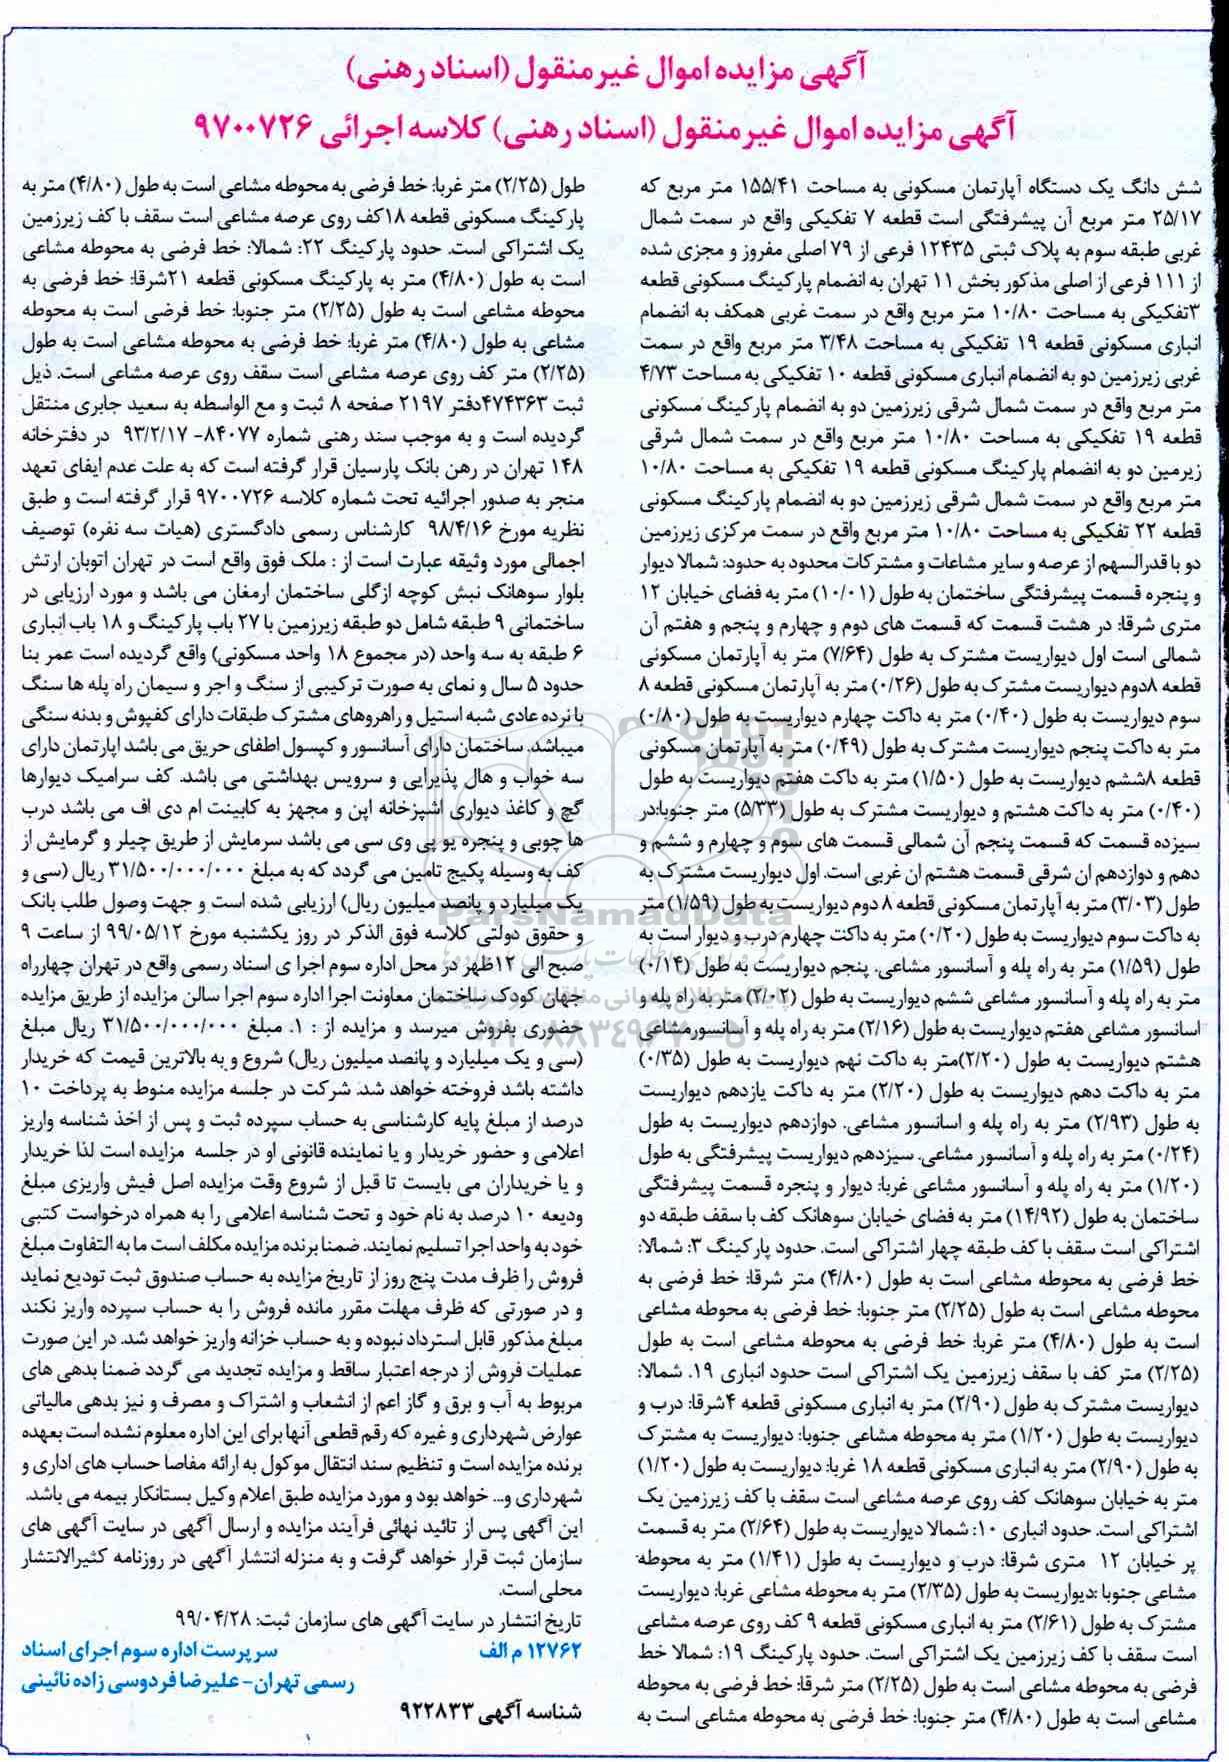 آگهی مزایده اموال غیرمنقول (اسناد رهنی)
آگهی مزایده اموال غیرمنقول (اسناد رهنی) کلاسه اجرائی ۹۷۰۰۷۲۶
شش دانگ یک دستگاه آپارتمان مسکونی به مساحت ۱۵۵/۴۱ متر مربع که
۲۵/۱۷ متر مربع آن پیشرفتگی است قطعه ۷ تفکیکی واقع در سمت شمال
غربی طبقه سوم به پلاک ثبتی ۱۲۴۳۵ فرعی از ۷۹ اصلی مفروز و مجزی شده
از ۱۱۱ فرعی از اصلی مذکور بخش ۱۱ تهران به انضمام پارکینگ مسکونی قطعه
۳تفکیکی به مساحت ۱۰/۸۰ متر مربع واقع در سمت غربی همکف به انضمام
انباری مسکونی قطعه ۱۹ تفکیکی به مساحت ۳/۴۸ متر مربع واقع در سمت
غربی زیرزمین دو به انضمام انباری مسکونی قطعه ۱۰ تفکیکی به مساحت ۴/۷۳
متر مربع واقع در سمت شمال شرقی زیرزمین دو به انضمام پارکینگ مسکونی
قطعه ۱۹ تفکیکی به مساحت ۱۰/۸۰ متر مربع واقع در سمت شمال شرقی
زیرمین دو به انضمام پارکینگ مسکونی قطعه ۱۹ تفکیکی به مساحت ۱۰/۸۰
متر مربع واقع در سمت شمال شرقی زیرزمین دو به انضمام پارکینگ مسکونی
قطعه ۲۲ تفکیکی به مساحت ۱۰/۸۰ متر مربع واقع در سمت مرکزی زیرزمین
دو با قدرالسهم از عرصه و سایر مشاعات و مشترکات محدود به حدود: شمالا دیوار
و پنجره قسمت پیشرفتگی ساختمان به طول (۱۰/۰۱) متر به فضای خیابان ۱۲
متری شرقا: در هشت قسمت که قسمت های دوم و چهارم و پنجم و هفتم آن
شمالی است اول دیواریست مشترک به طول (۷/۶۴) متر به آپارتمان مسکونی
قطعه ۸دوم دیواریست مشترک به طول (۰/۲۶) متر به آپارتمان مسکونی قطعه ۸
سوم دیواریست به طول (۰/۴۰) متر به داکت چهارم دیواریست به طول (۰/۸۰)
متر به داکت پنجم دیواریست مشترک به طول (۰/۴۹) متر به آپارتمان مسکونی
قطعه ۸ششم دیواریست به طول (۱/۵۰) متر به داکت هفتم دیواریست به طول
(۰/۴۰) متر به داکت هشتم و دیواریست مشترک به طول (۵/۳۳) متر جنوبا:در
سیزده قسمت که قسمت پنجم آن شمالی قسمت های سوم و چهارم و ششم و
دهم و دوازدهم ان شرقی قسمت هشتم ان غربی است. اول دیواریست مشترک به
طول (۳/۰۳) متر به آپارتمان مسکونی قطعه ۸ دوم دیواریست به طول (۱/۵۹) متر
به داکت سوم دیواریست به طول (۰/۲۰) متر به داکت چهارم درب و دیوار است به
طول (۱/۵۹) متر به راه پله و آسانسور مشاعی. پنجم دیواریست به طول (۰/۱۴)
متر به راه پله و آسانسور مشاعی ششم دیواریست به طول (۲/۰۲) متر به راه پله و
اسانسور مشاعی هفتم دیواریست به طول (۲/۱۶) متر به راه پله و آسانسورمشاعی
هشتم دیواریست به طول (۲/۲۰)متر به داکت نهم دیواریست به طول (۰/۳۵)
متر به داکت دهم دیواریست به طول (۲/۲۰) متر به داکت یازدهم دیواریست
به طول (۲/۹۳) متر به راه پله و اسانسور مشاعی. دوازدهم دیواریست به طول
(۰/۲۴) متر به راه پله و آسانسور مشاعی. سیزدهم دیواریست پیشرفتگی به طول
(۱/۲۰) متر به راه پله و آسانسور مشاعی غربا: دیوار و پنجره قسمت پیشرفتگی
ساختمان به طول (۱۴/۹۲) متر به فضای خیابان سوهانک کف با سقف طبقه دو
اشتراکی است سقف با کف طبقه چهار اشتراکی است. حدود پارکینگ ۳: شمالا:
خط فرضی به محوطه مشاعی است به طول (۴/۸۰) متر شرقا: خط فرضی به
محوطه مشاعی است به طول (۲/۲۵) متر جنوبا: خط فرضی به محوطه مشاعی
است به طول (۴/۸۰) متر غربا: خط فرضی به محوطه مشاعی است به طول
(۲/۲۵) متر کف با سقف زیرزمین یک اشتراکی است حدود انباری ۱۹. شمالا:
دیواریست مشترک به طول (۲/۹۰) متر به انباری مسکونی قطعه ۴شرقا: درب و
دیواریست به طول (۱/۲۰) متر به محوطه مشاعی جنوبا: دیواریست به مشترک
به طول (۲/۹۰) متر به انباری مسکونی قطعه ۱۸ غربا: دیواریست به طول (۱/۲۰)
متر به خیابان سوهانک کف روی عرصه مشاعی است سقف با کف زیرزمین یک
اشتراکی است. حدود انباری ۱۰: شمالا دیواریست به طول (۲/۶۴) متر به قسمت
پر خیابان ۱۲ متری شرقا: درب و دیواریست به طول (۱/۴۱) متر به محوطه
مشاعی جنوبا :دیواریست به طول (۲/۳۵) متر به محوطه مشاعی غربا: دیواریست
مشترک به طول (۲/۶۱) متر به انباری مسکونی قطعه ۹ کف روی عرصه مشاعی
است سقف با کف زیرزمین یک اشتراکی است. حدود پارکینگ ۱۹: شمالا خط
فرضی به محوطه مشاعی است به طول (۲/۲۵) متر شرقا: خط فرضی به محوطه
مشاعی است به طول (۴/۸۰) متر جنوبا: خط فرضی به محوطه مشاعی است به
طول (۲/۲۵) متر غربا: خط فرضی به محوطه مشاعی است به طول (۴/۸۰) متر به
پارکینگ مسکونی قطعه ۱۸کف روی عرصه مشاعی است سقف با کف زیرزمین
یک اشتراکی است. حدود پارکینگ ۲۲: شمالا: خط فرضی به محوطه مشاعی
است به طول (۴/۸۰) متر به پارکینگ مسکونی قطعه ۲۱شرقا: خط فرضی به
محوطه مشاعی است به طول (۲/۲۵) متر جنوبا: خط فرضی است به محوطه
مشاعی به طول (۴/۸۰) متر غربا: خط فرضی به محوطه مشاعی است به طول
(۲/۲۵) متر کف روی عرصه مشاعی است سقف روی عرصه مشاعی است. ذیل
ثبت ۴۷۴۳۶۳دفتر ۲۱۹۷ صفحه ۸ ثبت و مع الواسطه به سعید جابری منتقل
گردیده است و به موجب سند رهنی شماره ۸۴۰۷۷- ۹۳/۲/۱۷ در دفترخانه
۱۴۸ تهران در رهن بانک پارسیان قرار گرفته است که به علت عدم ایفای تعهد
منجر به صدور اجرائیه تحت شماره کلاسه ۹۷۰۰۷۲۶ قرار گرفته است و طبق
نظریه مورخ ۹۸/۴/۱۶ کارشناس رسمی دادگستری (هیات سه نفره) توصیف
اجمالی مورد وثیقه عبارت است از : ملک فوق واقع است در تهران اتوبان ارتش
بلوار سوهانک نبش کوچه ازگلی ساختمان ارمغان می باشد و مورد ارزیابی در
ساختمانی ۹ طبقه شامل دو طبقه زیرزمین با ۲۷ باب پارکینگ و ۱۸ باب انباری
۶ طبقه به سه واحد (در مجموع ۱۸ واحد مسکونی) واقع گردیده است عمر بنا
حدود ۵ سال و نمای به صورت ترکیبی از سنگ و اجر و سیمان راه پله ها سنگ
با نرده عادی شبه استیل و راهروهای مشترک طبقات دارای کفپوش و بدنه سنگی
میباشد. ساختمان دارای آسانسور و کپسول اطفای حریق می باشد اپارتمان دارای
سه خواب و هال پذیرایی و سرویس بهداشتی می باشد. کف سرامیک دیوارها
گچ و کاغذ دیواری اشپزخانه اپن و مجهز به کابینت ام دی اف می باشد درب
ها چوبی و پنجره یو پی وی سی می باشد سرمایش از طریق چیلر و گرمایش از
کف به وسیله پکیج تامین می گردد که به مبلغ ۳۱/۵۰۰/۰۰۰/۰۰۰ ریال (سی و
یک میلیارد و پانصد میلیون ریال) ارزیابی شده است و جهت وصول طلب بانک
و حقوق دولتی کلاسه فوق الذکر در روز یکشنبه مورخ ۹۹/۰۵/۱۲ از ساعت ۹
صبح الی ۱۲ظهر در محل اداره سوم اجرا ی اسناد رسمی واقع در تهران چهارراه
جهان کودک ساختمان معاونت اجرا اداره سوم اجرا سالن مزایده از طریق مزایده
حضوری بفروش میرسد و مزایده از : ۱. مبلغ ۳۱/۵۰۰/۰۰۰/۰۰۰ ریال مبلغ
(سی و یک میلیارد و پانصد میلیون ریال) شروع و به بالاترین قیمت که خریدار
داشته باشد فروخته خواهد شد. شرکت در جلسه مزایده منوط به پرداخت ۱۰
درصد از مبلغ پایه کارشناسی به حساب سپرده ثبت و پس از اخذ شناسه واریز
اعلامی و حضور خریدار و یا نماینده قانونی او در جلسه مزایده است لذا خریدار
و یا خریداران می بایست تا قبل از شروع وقت مزایده اصل فیش واریزی مبلغ
ودیعه ۱۰ درصد به نام خود و تحت شناسه اعلامی را به همراه درخواست کتبی
خود به واحد اجرا تسلیم نمایند. ضمنا برنده مزایده مکلف است ما به التفاوت مبلغ
فروش را ظرف مدت پنج روز از تاریخ مزایده به حساب صندوق ثبت تودیع نماید
و در صورتی که ظرف مهلت مقرر مانده فروش را به حساب سپرده واریز نکند
مبلغ مذکور قابل استرداد نبوده و به حساب خزانه واریز خواهد شد. در این صورت
عملیات فروش از درجه اعتبار ساقط و مزایده تجدید می گردد ضمنا بدهی های
مربوط به آب و برق و گاز اعم از انشعاب و اشتراک و مصرف و نیز بدهی مالیاتی
عوارض شهرداری و غیره که رقم قطعی آنها برای این اداره معلوم نشده است بعهده
برنده مزایده است و تنظیم سند انتقال موکول به ارائه مفاصا حساب های اداری و
شهرداری و... خواهد بود و مورد مزایده طبق اعلام وکیل بستانکار بیمه می باشد.
این آگهی پس از تائید نهائی فرآیند مزایده و ارسال آگهی در سایت آگهی های
سازمان ثبت قرار خواهد گرفت و به منزله انتشار آگهی در روزنامه کثیرالانتشار
محلی است.
تاریخ انتشار در سایت آگهی های سازمان ثبت: ۹۹/۰۴/۲۸
۱۲۷۶۲ م الف سرپرست اداره سوم اجرای اسناد
رسمی تهران- علیرضا فردوسی زاده نائینی
شناسه آگهی ۹۲۲۸۳۳
ParsNamadData